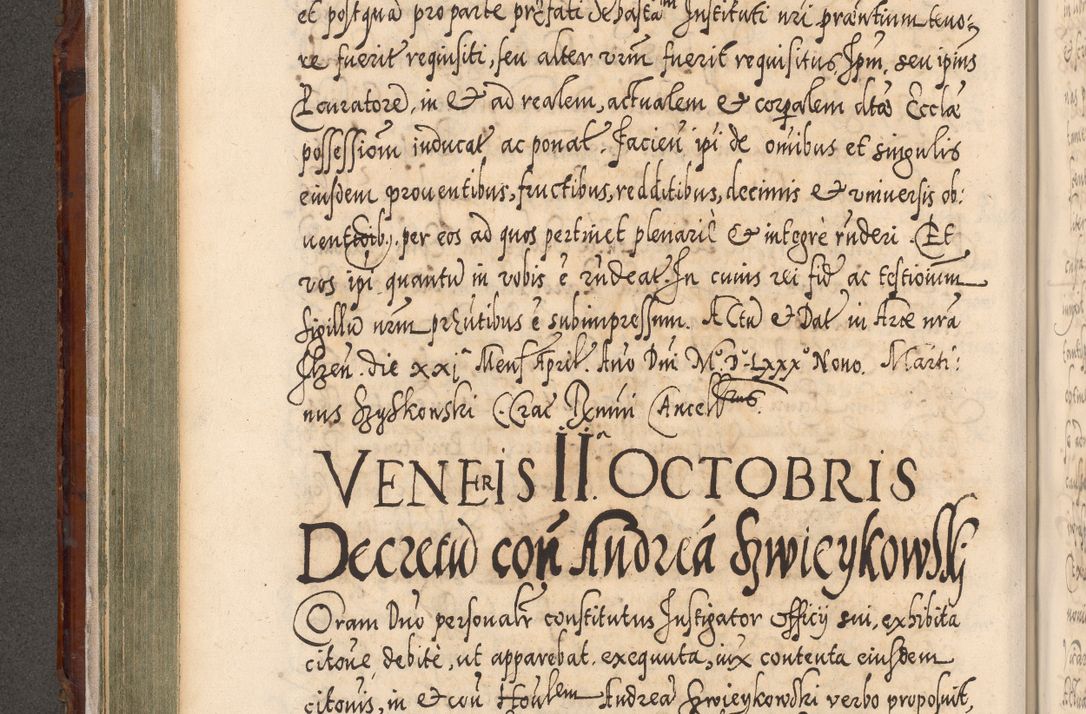 et postquā pro parte prefati Sebastani Instituti nri præntium teno-
re fuerit requisiti, seu alter vrm fuerit requisitus, Ipm, seu ipius
Pcuratorē, in & ad realem, actualem & corpalem dtæ Ecclæ
possessionī inducat ac ponat. Facien ipi de omibus et singulis
eiusdem prouentibus, fructibus, redditibus, decimis & vniuersis ob:
uentioib9, per eos ad quos pertinet plenariè & integrè rnderi. Et
vos ipi quantū in vobis ē rndeat. In cuius rei fid ac testioium
Sigillū nrm prntibus ē subimpressum. Actū & Dat in Arce nra
Ilzen. die xxj Mens April. Ano Dni Mº.Dº.Lxxxº Nono. Marti:
nus Szyszkowski
VENERIS II. OCTOBRIS
Decretū con Andreā Szwieykowskj
Coram Dno personalr constitutus Instigator officij sui, exhibita
citone debitè, ut apparebat exequuta, iux contenta eiusdem
citonis, in & con Honlem Andreā Szwieykowski verbo proposuit,